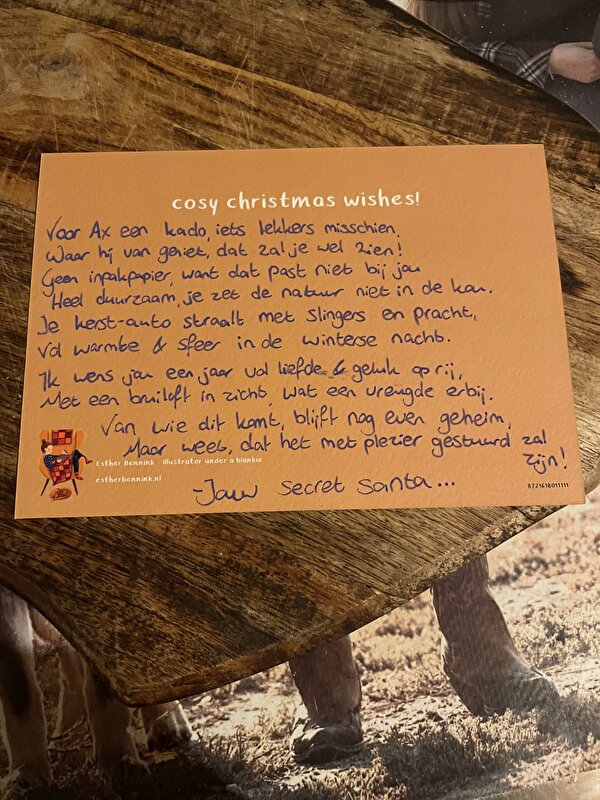 cosy christmas wishes!
Voor Ax een kado, iets lekkers misschien,
Waar hij van geniet, dat zal je wel zien!
Geen inpakpapier, want dat past niet bij jou
Heel duurzaam, je zet de natuur niet in de kou.
Je kerst-auto straalt met slingers en pracht,
Vol warmte & sfeer in de winterse nacht.
Ik wens jou een jaar vol liefde & geluk op rij,
Met een bruiloft in zicht, wat een vreugde erbij.
Van wie dit komt, blijft nog even geheim,
Maar weet, dat het met plezier gestuurd zal
zijn!
Esther Bennink - Illustrator under a blankie
estherbennink.nl
-Jouw Secret Santa...
8721618011111